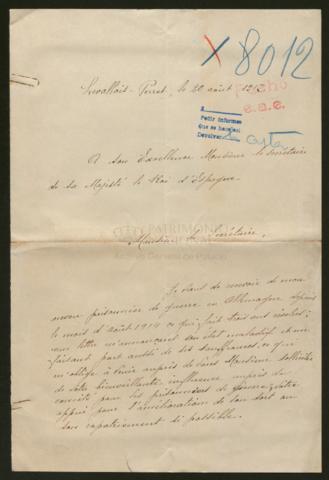 X 8012
Levallois-Perret, le 20 août
Pedir informes
que se hagan
Devolver
A Son Excellence Monsieur le Secrétaire
de Sa Majesté le Roi d'Espagne
PATRIMONIO
Archivo General de Palacio
Monsieur le Secrétaire,
Je viens de recevoir de mon
prisonnier de guerre en Allemagne depuis
le mois d'août 1914 ce qui fait trois ans
une lettre m'annonçant son état maladif et me
faisant part aussi de ses souffrances, ce qui
m'oblige à venir auprès de vous Monsieur solliciter
de votre bienveillante influence auprès du
comité pour les prisonniers de guerre votre
appui pour l'amélioration de son sort ou
son rapatriement si possible.